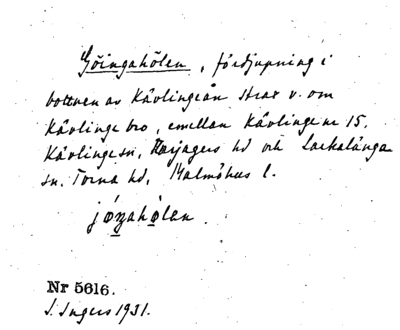 Göingahölen, fördjupning i
bottnen av Kävlingeån strax v. om
Kävlinge bro, emellan Kävlinge nr 15,
Kävlinge sn, Harjagers hd och Lackalänga
sn, Torna hd, Malmöhus l.
Nr 5616.
S. Ingers 1931.